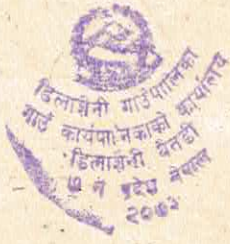 डिलाशैनी गाउँपालिका
गाउँ कार्यपालिकाको कार्यालय
डिलाशैनी बैतडी
७ नं प्रदेश नेपाल
२०७३